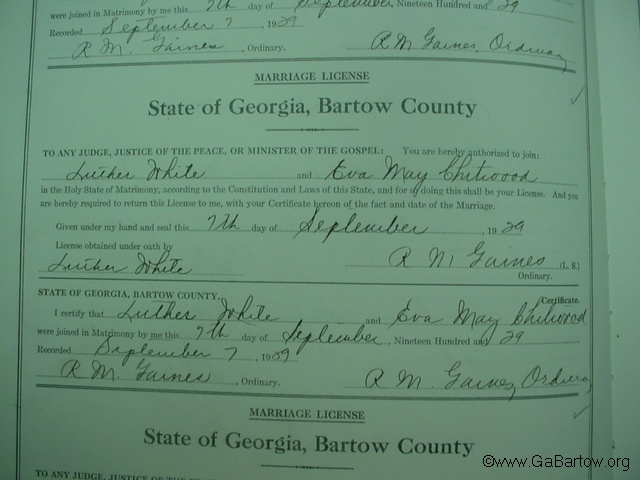 were joined in Matrimony by me this 7th day of September, Nineteen Hundred and 29
Recorded September 7, 1929
R M. Gaines, Ordinary. R M Gaines, Ordinary
MARRIAGE LICENSE
State of Georgia, Bartow County
TO ANY JUDGE, JUSTICE OF THE PEACE, OR MINISTER OF THE GOSPEL: You are hereby authorized to join:
Luther White and Eva May Chitwood
in the Holy State of Matrimony, according to the Constitution and Laws of this State, and for so doing this shall be your License. And you
are hereby required to return this License to me, with your Certificate hereon of the fact and date of the Marriage.
Given under my hand and seal this 7th day of September, 1929
License obtained under oath by
Luther White R M Gaines (L. S.)
Ordinary.
STATE OF GEORGIA, BARTOW COUNTY. Certificate.
I certify that Luther White and Eva May Chitwood
were joined in Matrimony by me this 7th day of September, Nineteen Hundred and 29
Recorded September 7, 1929
R M. Gaines, Ordinary. R M. Gaines, Ordinary
MARRIAGE LICENSE
State of Georgia, Bartow County
©www.GaBartow.org